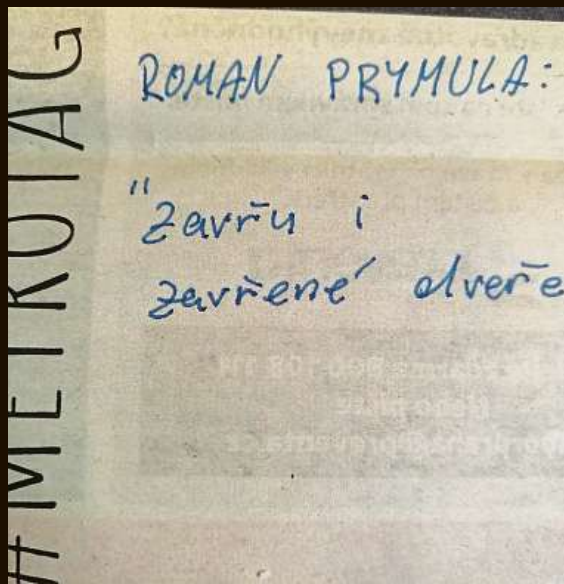 #METROTAG
ROMAN PRYMULA:
"Zavřu i
zavřené dveře